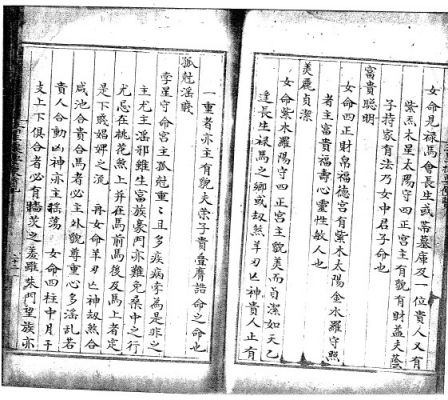 女命見祿馬會長生或帝墓庫及一位貴人又有
紫炁木星太陽守四正宮主有貌有財益夫蔭
子持家有法乃女中君子命也
富貴聰明
女命四正財帛福德宮有紫木太陽金水羅守照
者主富貴福壽心靈性敏人也
美麗貞潔
女命紫木羅陽守四正宮主貌美而貞潔如天乙
逢長生祿馬之鄉或劫煞羊刃亡神貴人止有
一重者亦主有貌夫榮子貴疊膺誥命之命也
孤尅滛賤
孛星守命宮主孤尅重〻且多疾病孛為是非之
主尤主滛邪雖生富族豪門亦難免桑中之行
尤忌在桃花煞上并在馬前馬後及馬上者定
是下賤娼婢之流 再女命羊刃亡神劫煞合
咸池合貴合馬者必主外貌尊重心多滛乱若
貴人合動凶神亦主搖蕩 女命四柱中月干
支上下俱合者必有牆茨之羞雖朱門望族亦